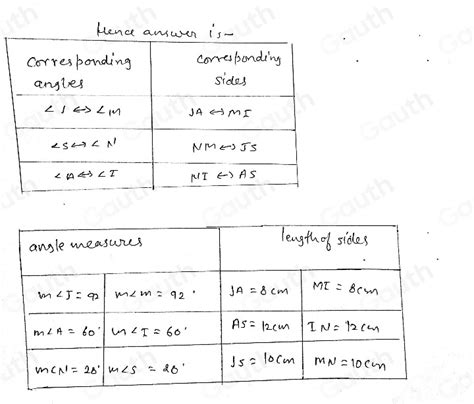 Hence answer is -
Corresponding angles
Corresponding sides
∠J ↔ ∠M
JA ↔ MI
∠S ↔ ∠N
NM ↔ JS
∠A ↔ ∠I
NI ↔ AS
angle measures
length of sides
m∠J = 92
m∠m = 92°
JA = 8cm
MI = 8cm
m∠A = 60°
m∠I = 60°
AS = 12cm
IN = 12cm
m∠N = 28°
m∠S = 28°
JS = 10cm
MN = 10cm
Gauth